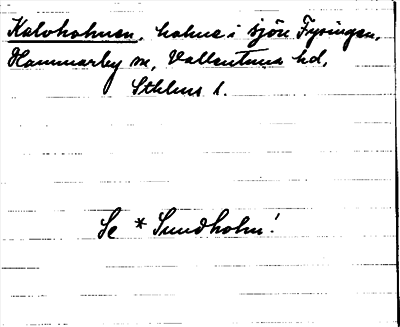 Kalvholmen, holme i sjön Fysingen,
Hammarby sn, Vallentuna hd,
Sthlms l.
Se * Sundholm!